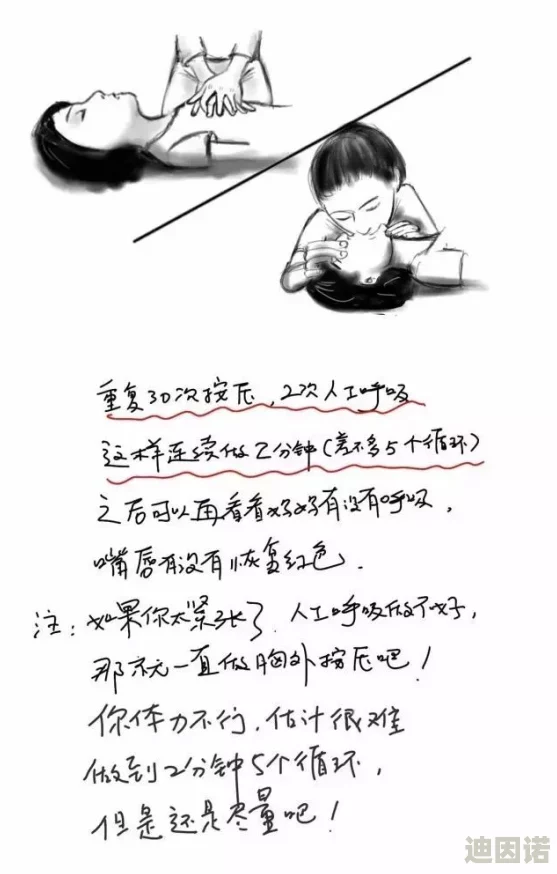 重复30次按压，2次人工呼吸
这样连续做2分钟（差不多5个循环）
之后可以再看看妈妈有没有呼吸，
嘴唇有没有恢复红色.
注：如果你太紧张了，人工呼吸做不好，
那就一直做胸外按压吧！
你体力不行，估计很难
做到2分钟5个循环，
但是还是尽量吧！
迪因诺